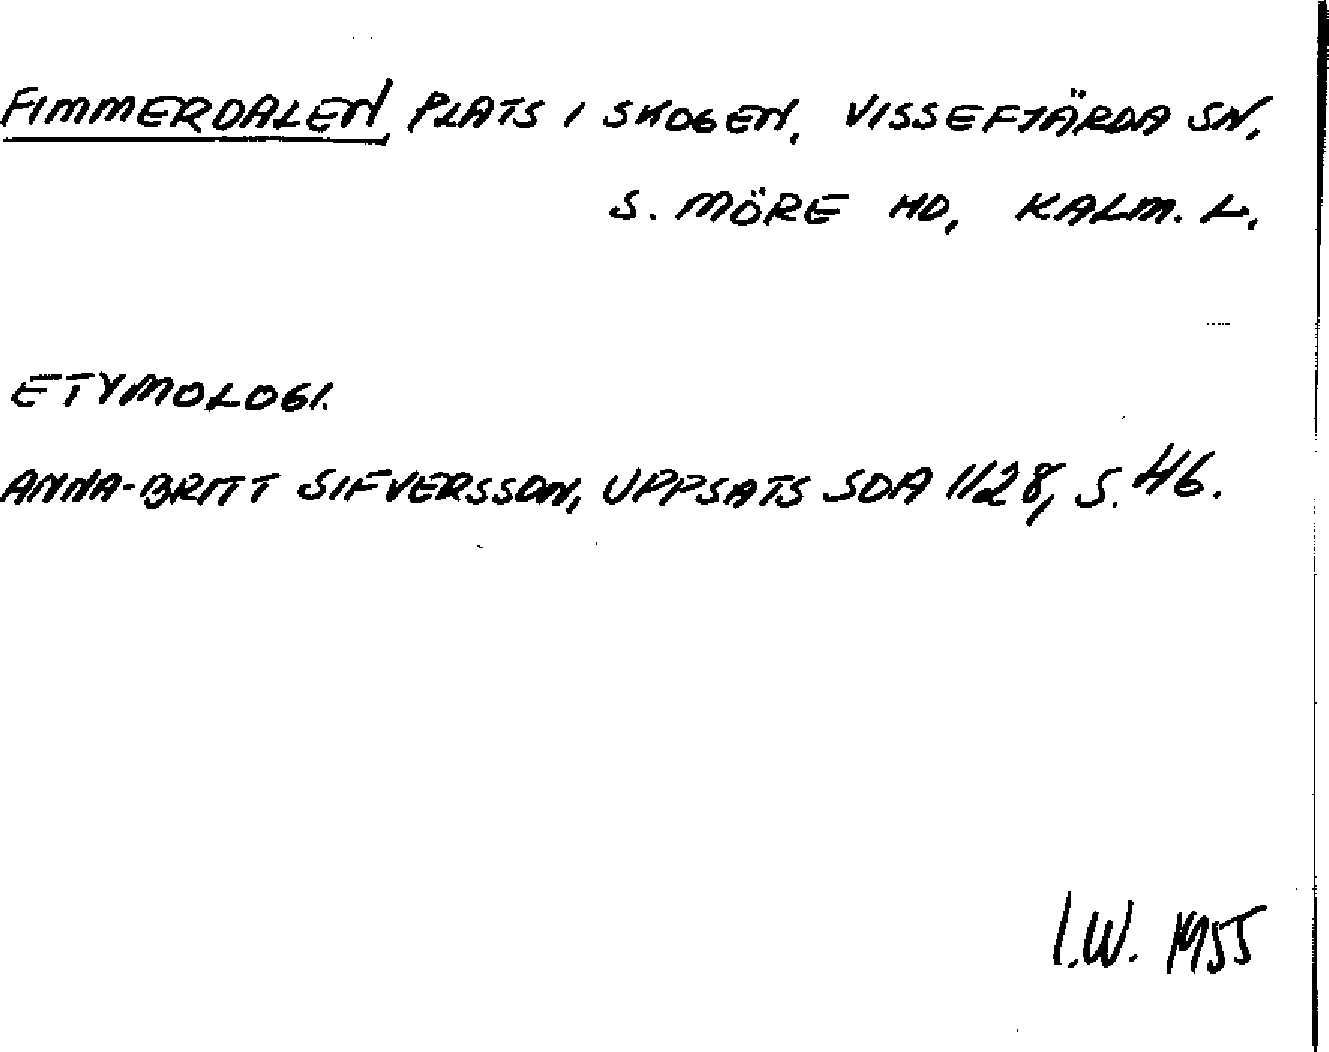 FIMMERDALEN, PLATS I SKOGEN, VISSEFJÄRDA SN,
S. MÖRE HD, KALM. L.
ETYMOLOGI.
ANNA-BRITT SIFVERSSON, UPPSATS SOA 1128, S. 46.
I.W. 1955